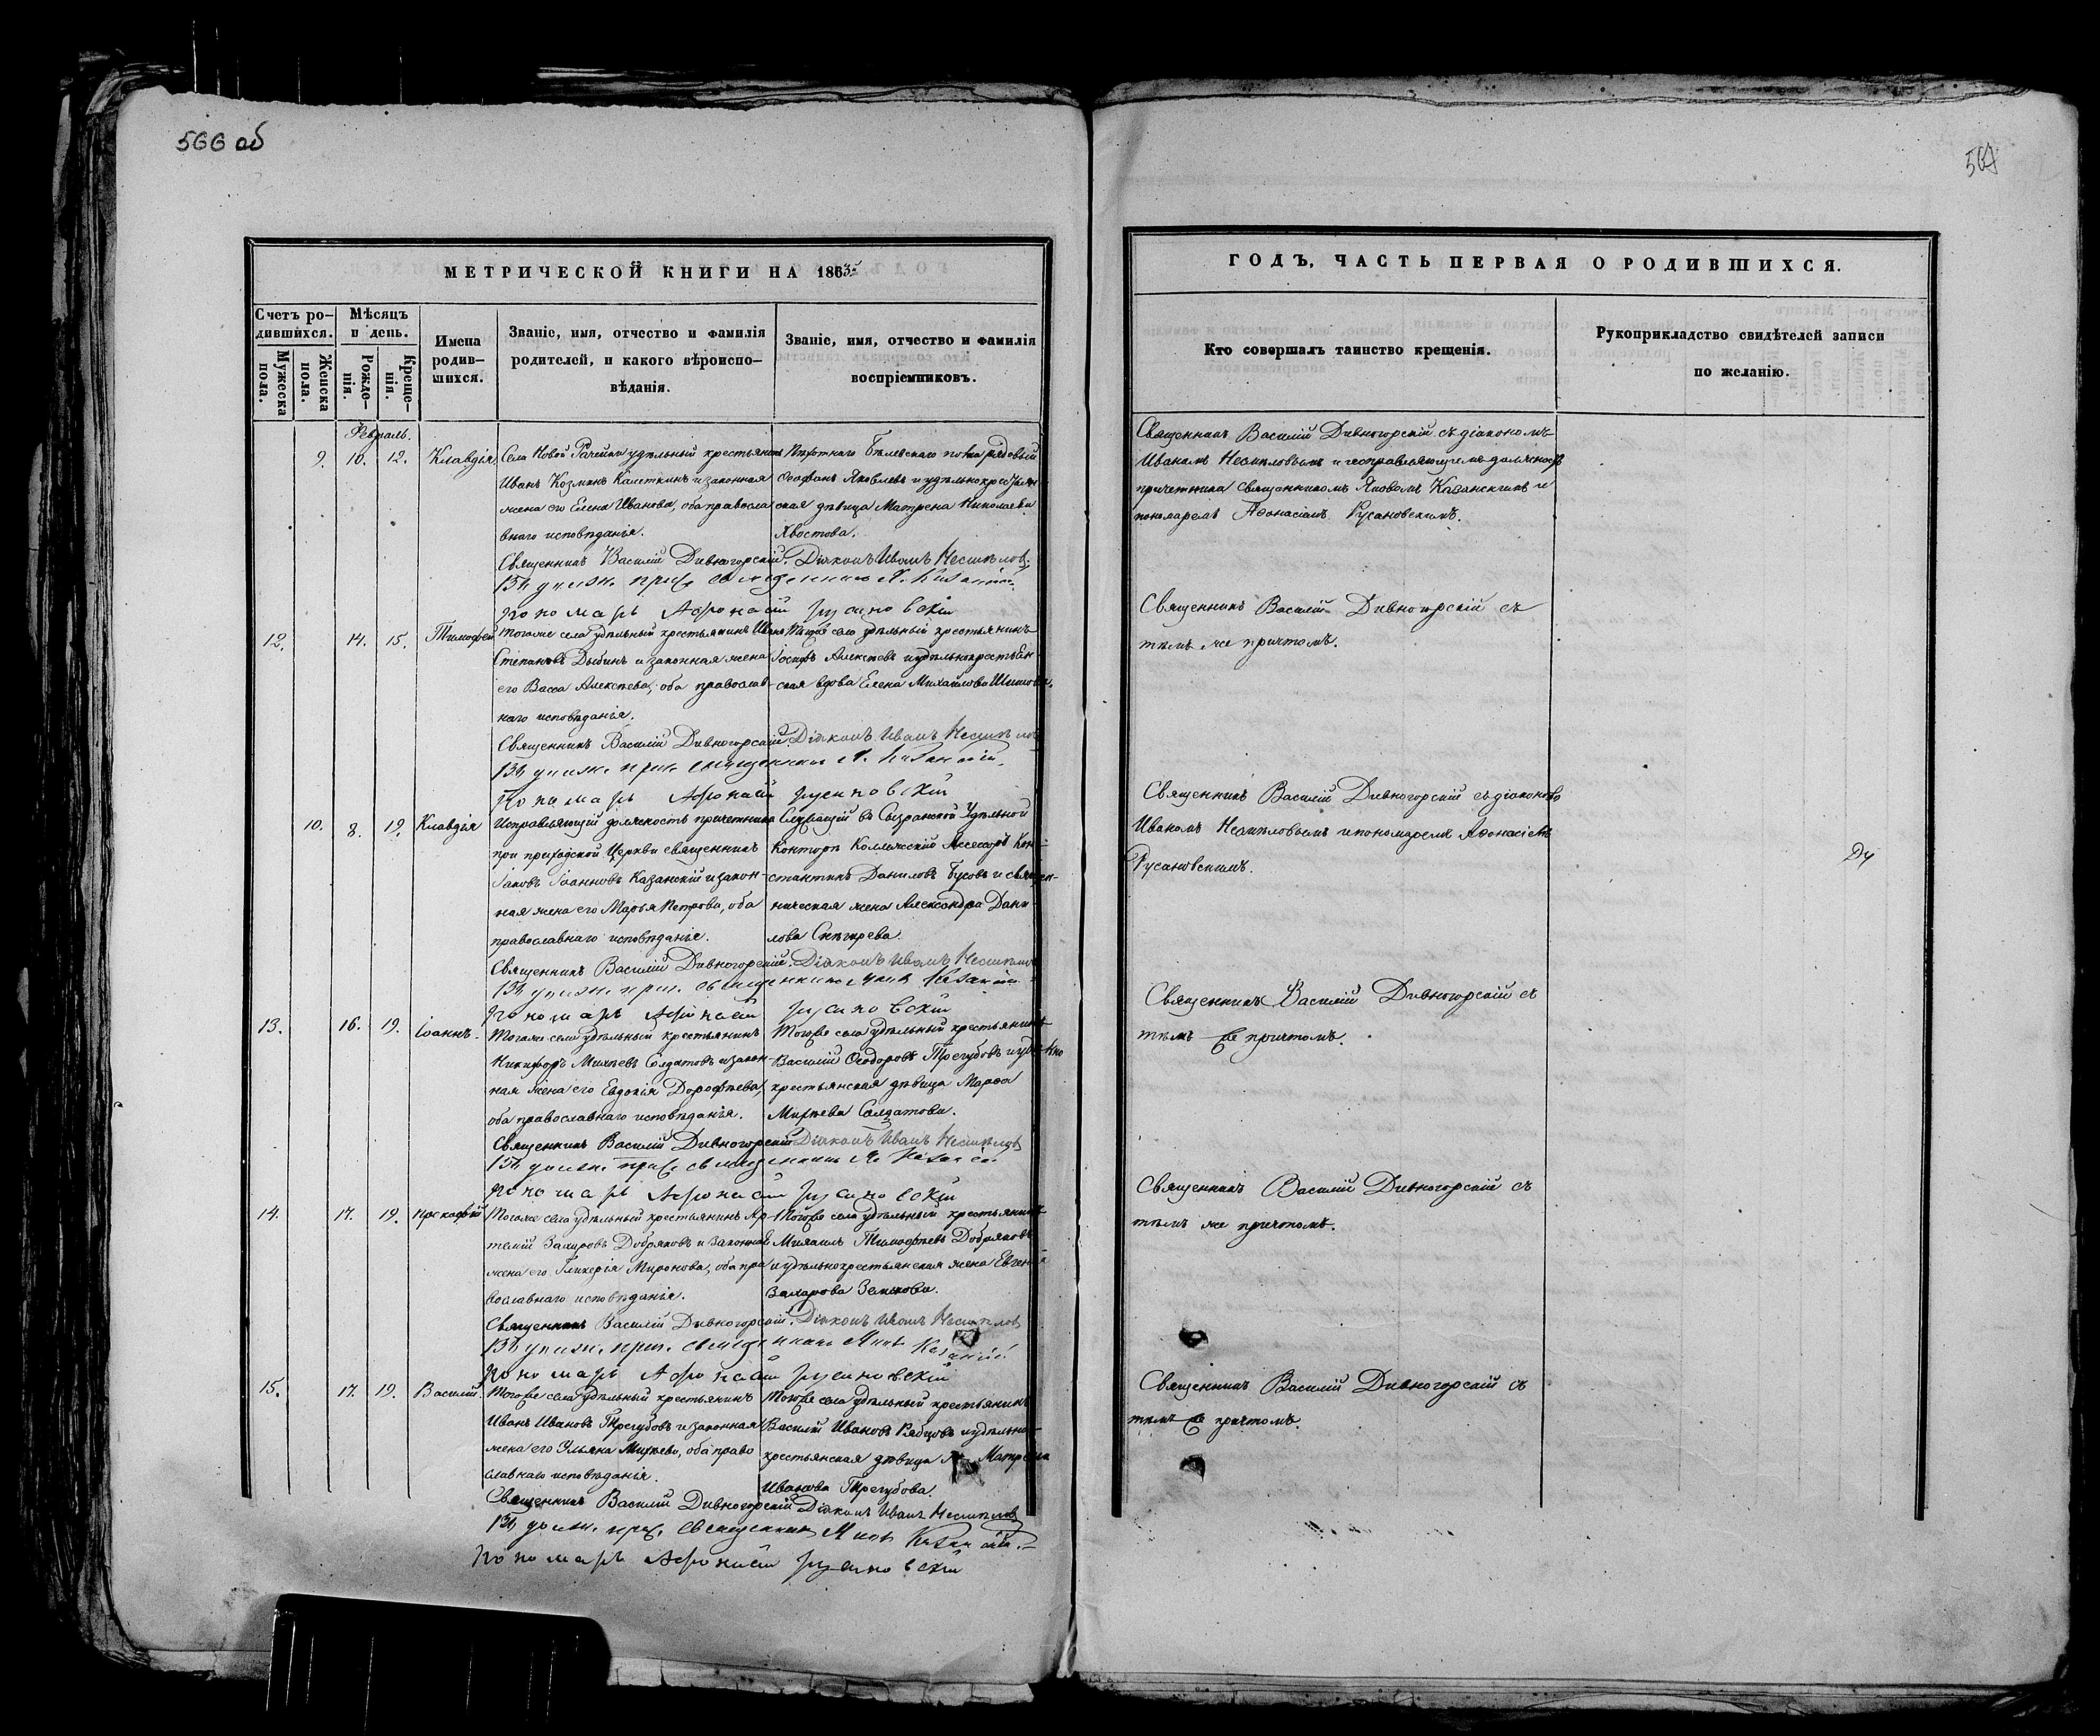 566 об
МЕТРИЧЕСКОЙ КНИГИ НА 1863
Счетъ ро-
дившихся.
Мужеска пола.
Женска пола.
Мѣсяцъ
и день.
Рожде-
нія.
Креще-
нія.
Имена
родив-
шихся.
Званіе, имя, отчество и фамилія
родителей, и какого вѣроиспо-
вѣданія.
Званіе, имя, отчество и фамилія
воспріемниковъ.
Февраль.
9. 10. 12. Клавдія
Села Новой Рачейки удѣльный крестьянинъ
Иванъ Козминъ Калеткинъ и законная
жена его Елена Иванова, оба правосла
внаго исповѣданія.
Пѣхотнаго Бѣлевскаго полка рядовый
Ѳеофанъ Яковлевъ и удѣльнокрестьян-
ская дѣвица Матрена Николаева
Хвостова.
Священникъ Василій Дивногорскій. Діаконъ Иванъ
Пономарь Афонасій Русановскій
12. 14. 15. Тимофей
Тогоже села удѣльный крестьянинъ Иванъ
Степановъ Дыбинъ и законная жена
его Васса Алексѣева, оба православ-
наго исповѣданія.
Тогоже села удѣльный крестьянинъ
Іосифъ Алексѣевъ и удѣльнокрестьян-
ская вдова Елена Михайлова
Священникъ Василій Дивногорскій. Діаконъ Иванъ
Пономарь Афонасій Русановскій
10. 8. 19. Клавдія
Исправляющій должность причетника
при приходской Церкви священникъ
Іаковъ Іоанновъ Казанскій и закон-
ная жена его Марья Петрова, оба
православнаго исповѣданія.
Служащій въ Сызранской Удѣльной
Конторѣ Коллежскій Ассесоръ Кон-
стантинъ Даниловъ Бусовъ и священ-
ническая жена Александра Дани
лова Снѣгирева.
Священникъ Василій Дивногорскій. Діаконъ Иванъ
Пономарь Афонасій Русановскій
13. 16. 19. Іоаннъ.
Тогоже села удѣльный крестьянинъ
Никифоръ Михѣевъ Солдатовъ и закон
ная жена его Евдокія Дорофѣева,
оба православнаго исповѣданія.
Тогоже села удѣльный крестьянинъ
Василій Ѳеодоровъ Трегубовъ и удѣльно
крестьянская дѣвица Марѳа
Михѣева Солдатова.
Священникъ Василій Дивногорскій Діаконъ Иванъ
Пономарь Афонасій Русановскій
14. 17. 19. Прокофій
Тогоже села удѣльный крестьянинъ Ар-
темій Захаровъ Добряковъ и законная
жена его Гликерія Миронова, оба пра
вославнаго исповѣданія.
Тогоже села удѣльный крестьянинъ
Михаилъ Тимофѣевъ Добряковъ
и удѣльнокрестьянская жена Евгенія
Захарова Земскова.
Священникъ Василій Дивногорскій. Діаконъ Иванъ
Пономарь Афонасій Русановскій
15. 17. 19. Василій.
Тогоже села удѣльный крестьянинъ
Иванъ Ивановъ Трегубовъ и законная
жена его Ульяна Михѣева, оба право
славнаго исповѣданія.
Тогоже села удѣльный крестьянинъ
Василій Ивановъ Рябцовъ и удѣльно-
крестьянская дѣвица Матрена
Иванова Трегубова.
Священникъ Василій Дивногорскій Діаконъ Иванъ
Пономарь Афонасій Русановскій
ГОДЪ, ЧАСТЬ ПЕРВАЯ О РОДИВШИХСЯ.
Кто совершалъ таинство крещенія.
Рукоприкладство свидѣтелей записи
по желанію.
Священникъ Василій Дивногорскій съ діакономъ
Иваномъ и исправляющимъ должность
причетника священникомъ Яковомъ Казанскимъ и
пономаремъ Аѳонасіемъ Русановскимъ.
Священникъ Василій Дивногорскій съ
тѣмъ же причтомъ.
Священникъ Василій Дивногорскій съ діакономъ
Иваномъ и пономаремъ Аѳонасіемъ
Русановскимъ.
Священникъ Василій Дивногорскій съ
тѣмъ же причтомъ.
Священникъ Василій Дивногорскій съ
тѣмъ же причтомъ.
Священникъ Василій Дивногорскій съ
тѣмъ же причтомъ.